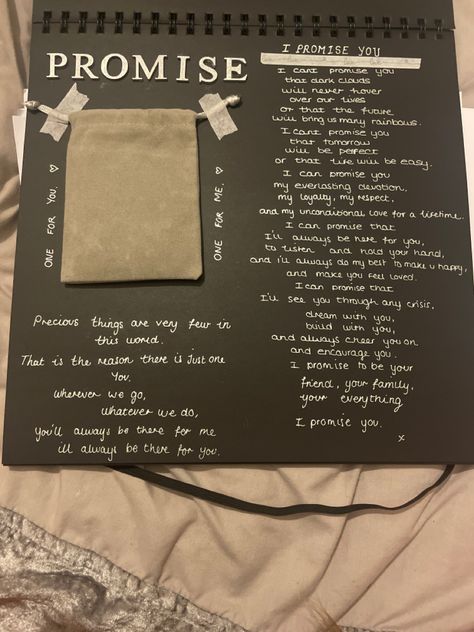 PROMISE
ONE FOR YOU. ♡
ONE FOR ME. ♡
Precious things are very few in
this world.
That is the reason there is just one
You.
wherever we go,
whatever we do,
you'll always be there for me
ill always be there for you.
I PROMISE YOU
I cant promise you
that dark clouds
will never hover
over our lives
or that the future
will bring us many rainbows.
I cant promise you
that tomorrow
will be perfect
or that life will be easy.
I can promise you
my everlasting devotion,
my loyalty, my respect,
and my unconditional love for a lifetime.
I can promise that
I'll always be here for you,
to listen and hold your hand,
and i'll always do my best to make u happy,
and make you feel loved.
I can promise that
I'll see you through any crisis,
dream with you,
build with you,
and always cheer you on
and encourage you.
I promise to be your
friend, your family,
your everything.
I promise you.
x